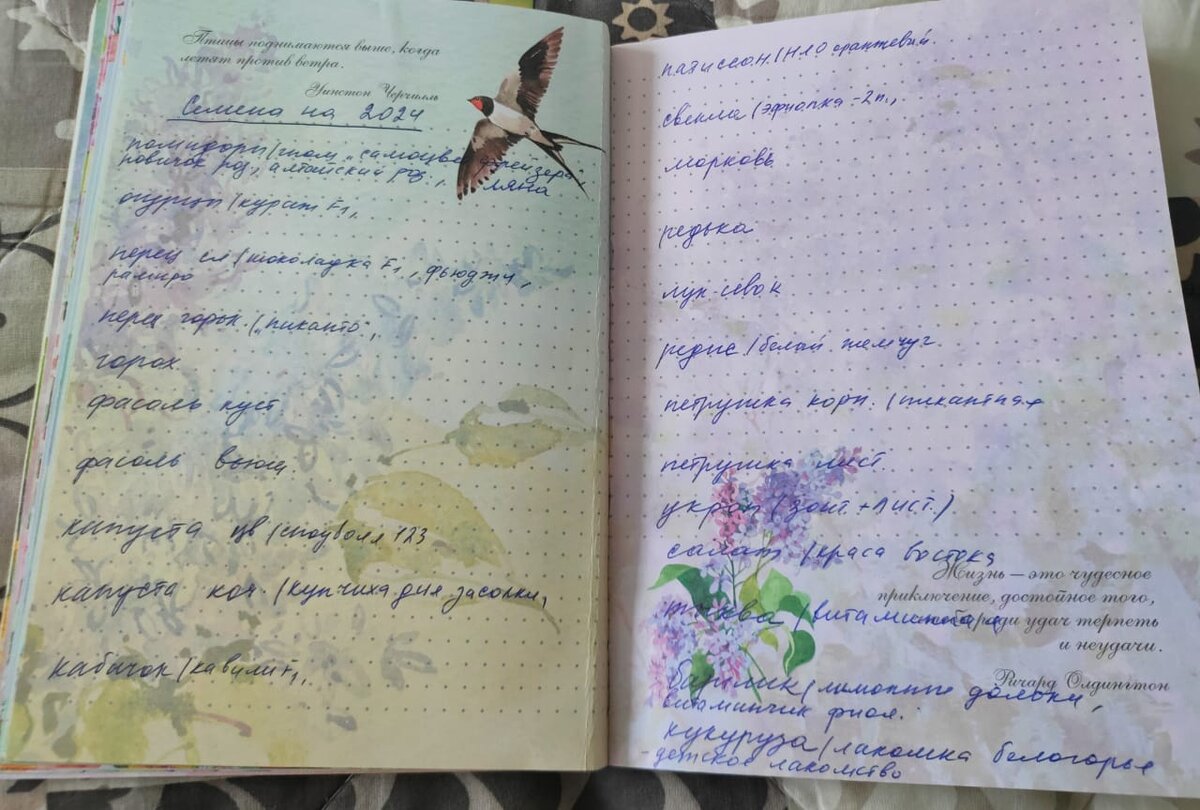 Птицы поднимаются выше, когда
летят против ветра.
Уинстон Черчилль
Семена на 2024
помидоры/гном, самоцвет фрейзера
новичок роз., алтайский роз., ляна
огурцы/кураж F1,
перец сл/шоколадка F1, фьюджи,
рамиро
перец горьк./"пиканто",
горох
фасоль куст
фасоль вьющ
капуста цв/сноуболл 123
капуста коч./купчиха для засолки,
кабачок/кавили F1,
патиссон./НЛО оранжевый.
свекла/эфиопка-2п.,
морковь
редька
лук-севок
редис/белый жемчуг.
петрушка корн./пикантная
петрушка лист.
укроп (зонт.+лист.)
салат/краса востока
Жизнь — это чудесное
приключение, достойное того,
чтобы ради удач терпеть
тыква/витаминная
и неудачи.
Ричард Олдингтон
базилик/лимонные дольки,
витаминчик фиол.
кукуруза/лакомка белогорья
детское лакомство